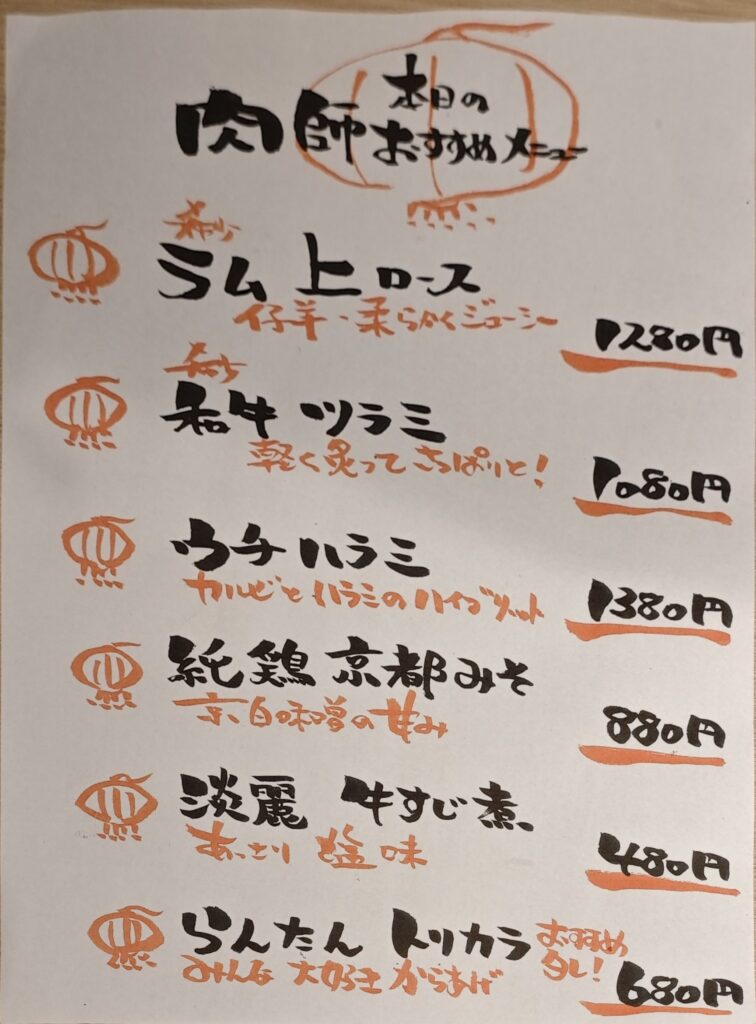 肉師 本日の
おすすめメニュー
希少
ラム 上ロース
仔羊・柔らかくジューシー
1280円
希少
和牛 ツラミ
軽く炙ってさっぱりと!
1080円
ウチハラミ
カルビとハラミのハイブリット
1380円
純鶏 京都みそ
京白味噌の甘み
880円
淡麗 牛すじ煮
あっさり 塩味
480円
らんたん トリカラ
おすすめ
タレ!
みんな 大好き からあげ
680円